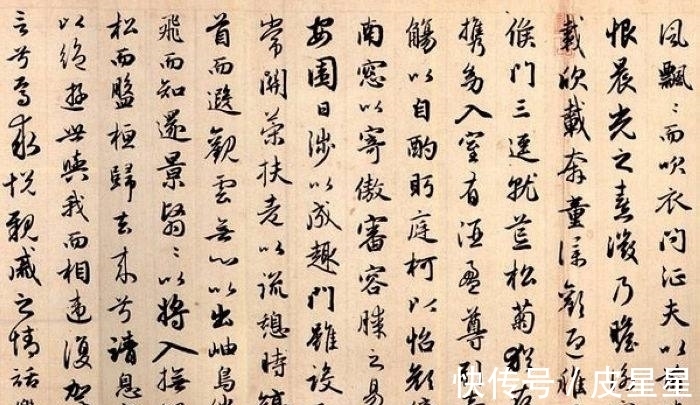 風飄〻而吹衣問征夫以
恨晨光之熹微乃瞻
載欣載奔童僕歡迎稚
候門三逕就荒松菊猶
携幼入室有酒盈尊引
觴以自酌眄庭柯以怡顏
南窓以寄傲審容膝之易
安園日涉以成趣門雖設
常關策扶老以流憩時矯
首而遐觀雲無心以出岫鳥倦
飛而知還景翳〻以將入撫
松而盤桓歸去来兮請息
以絶遊世與我而相違復駕
言兮焉求悅親戚之情話樂
快传号 / 皮星星